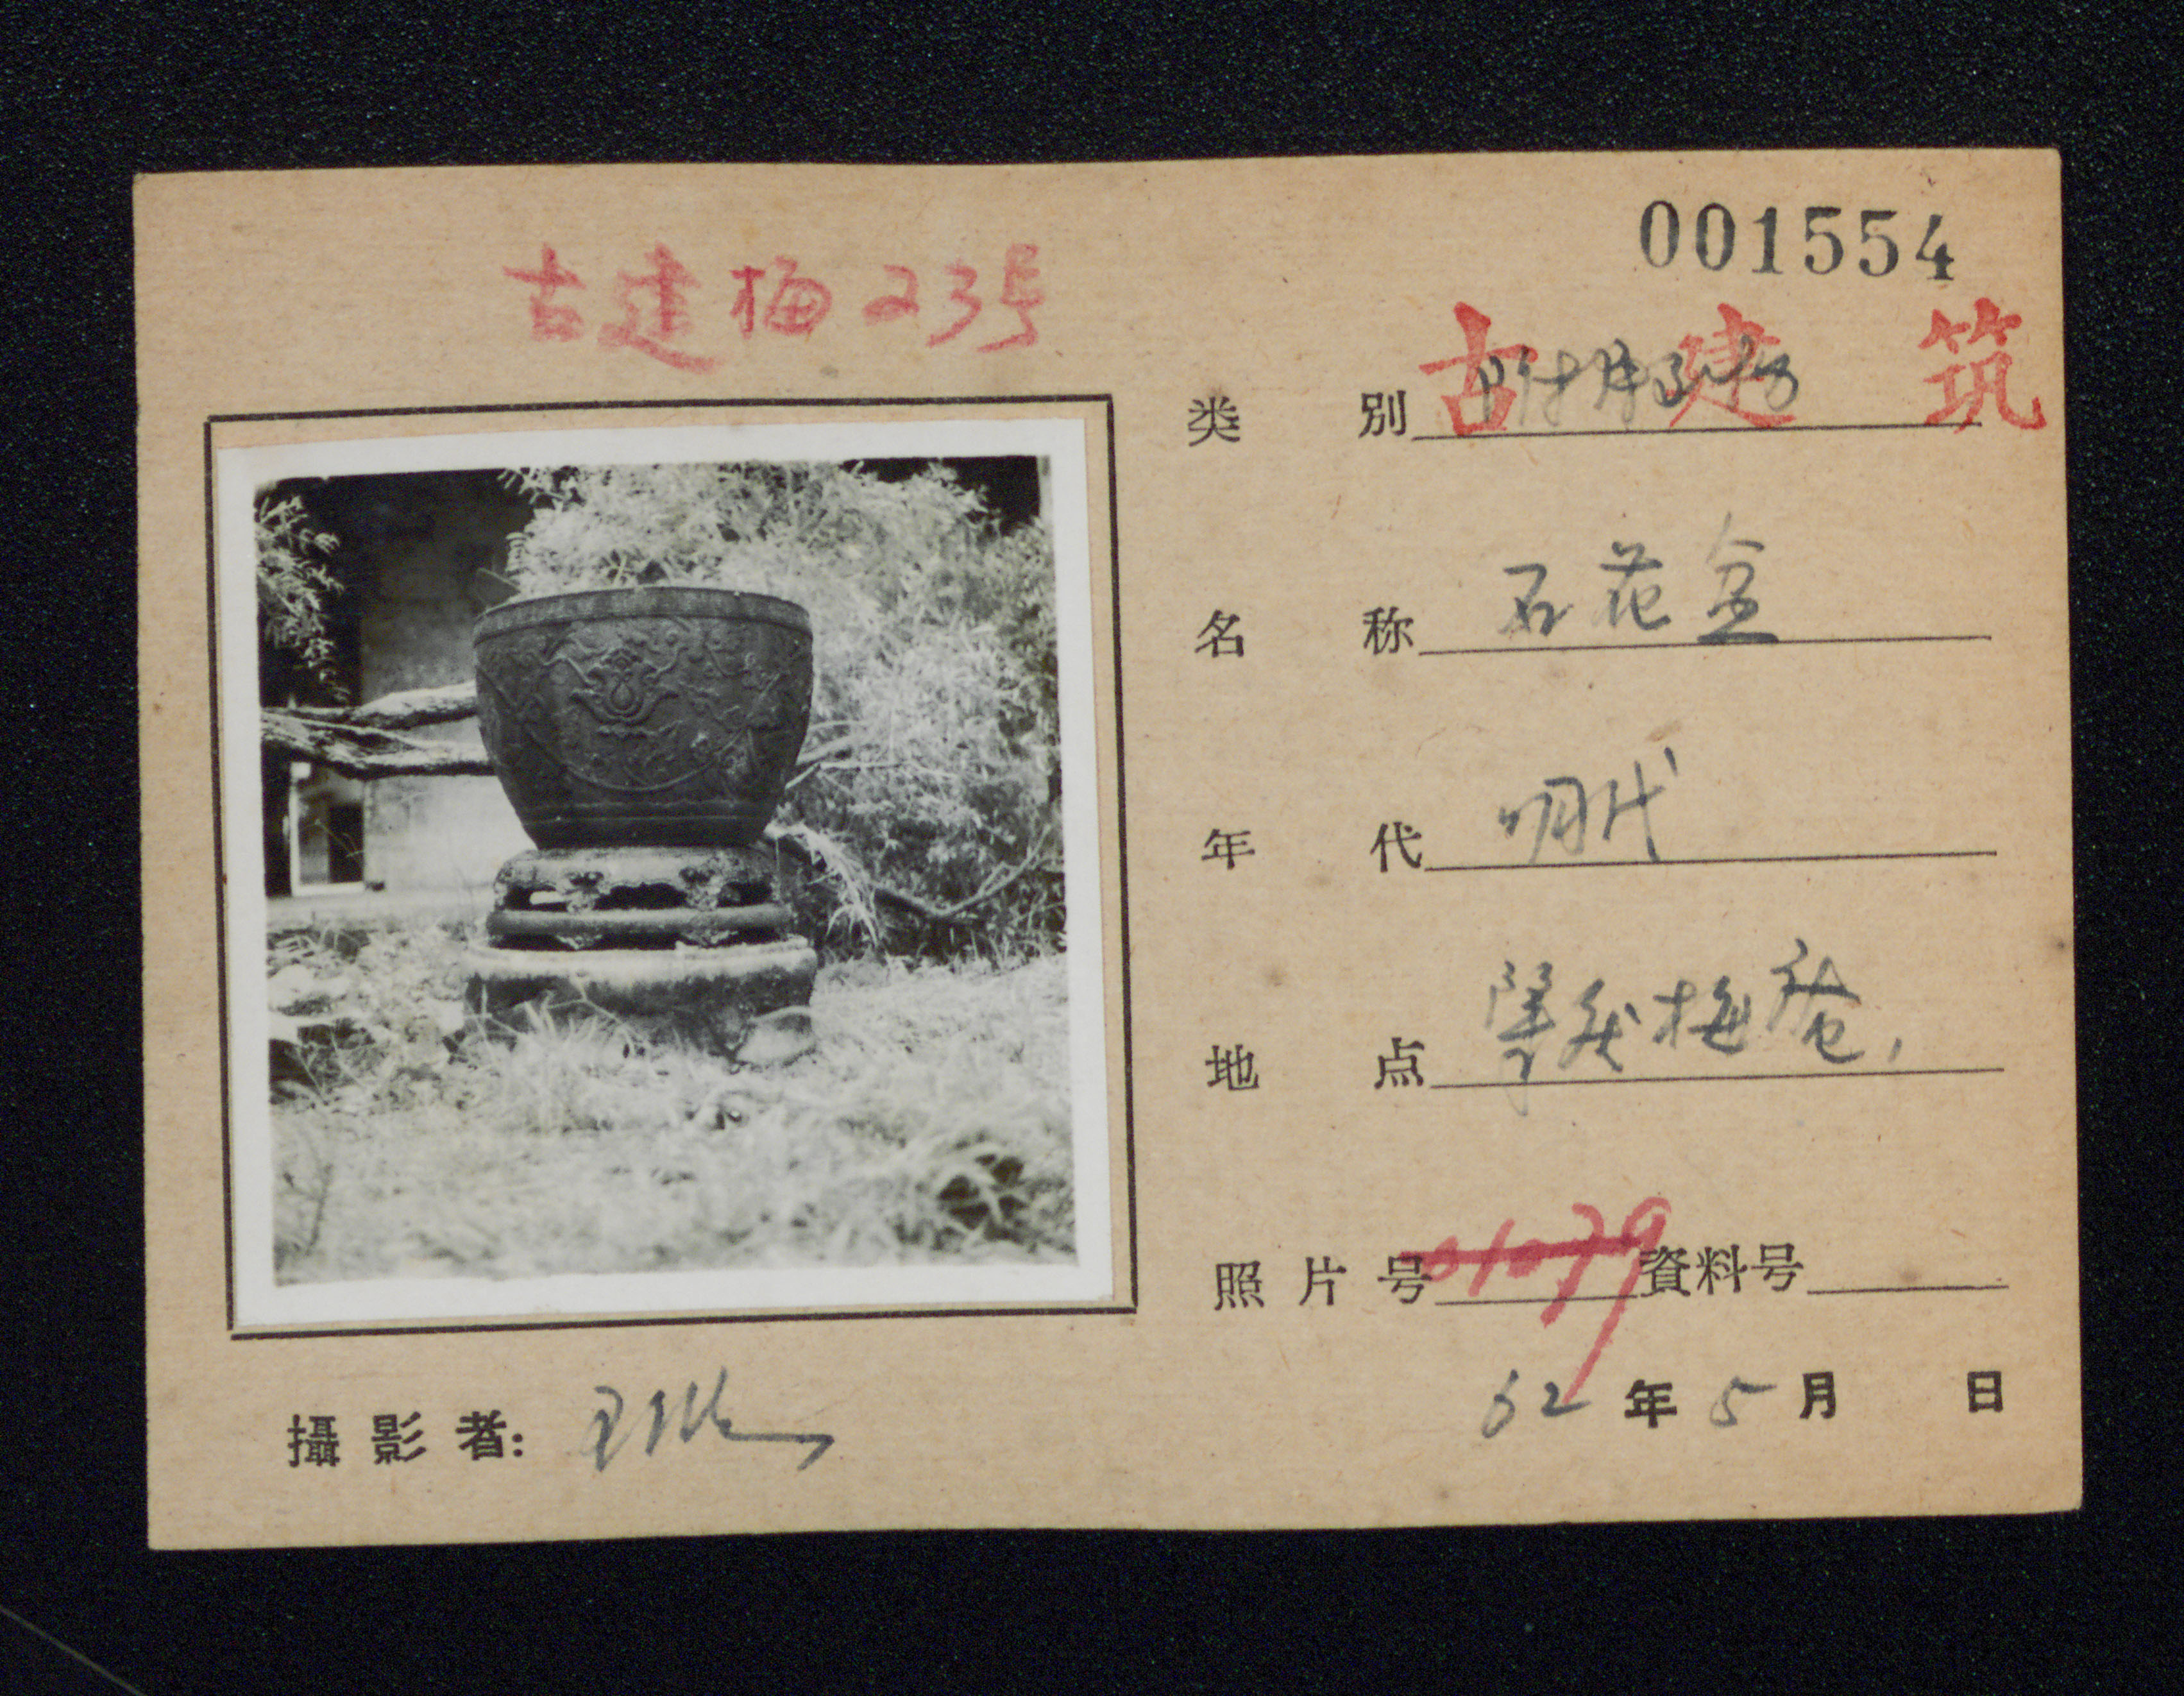 001554
古建梅23号
类别 古建筑
名称 石花盆
年代 明代
地点 肇庆梅庵
照片号 01079 資料号
62年5月 日
攝影者: